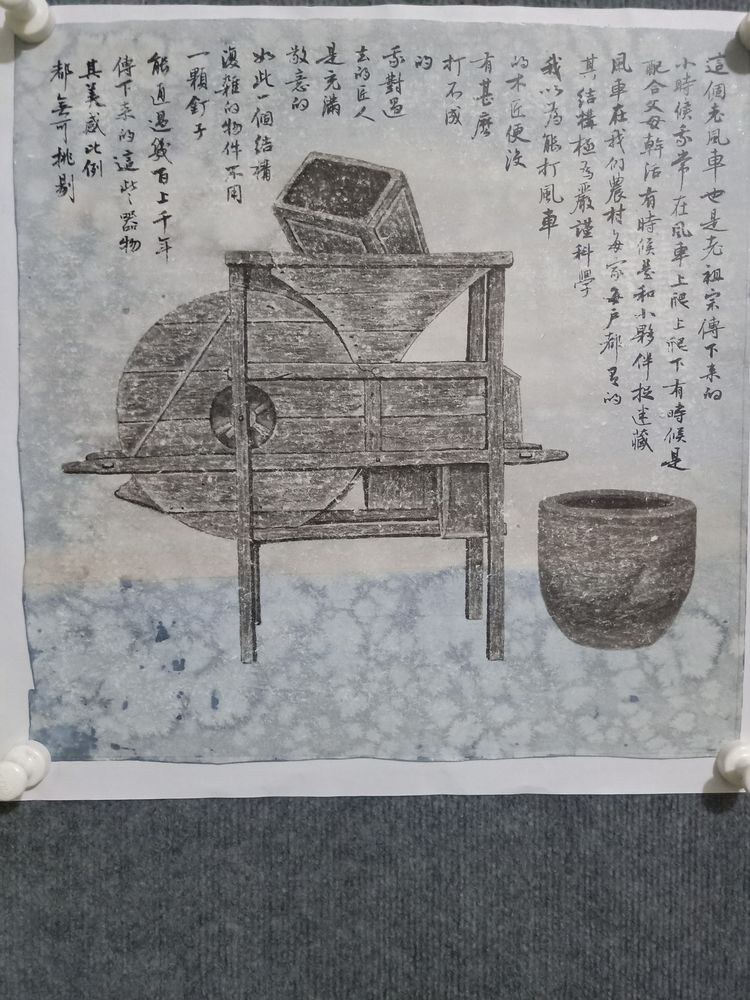 這個老風車也是老祖宗傳下来的
小時候我常在風車上爬上爬下有時候是
配合父母幹活有時候是和小夥伴捉迷藏
風車在我们農村每家每戶都有的
其結構極为嚴謹科學
我以为能打風車
的木匠便没
有甚麼
打不成
的
我對過
去的匠人
是充满
敬意的
如此一個結構
復雜的物件不用
一顆釘子
能通過幾百上千年
傳下来的這些器物
其美感比例
都無可挑剔